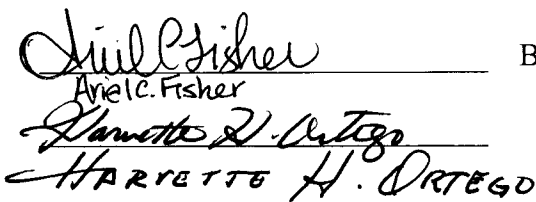 Ariel C. Fisher B
Ariel C. Fisher
Harvette H. Ortego
HARVETTE H. ORTEGO